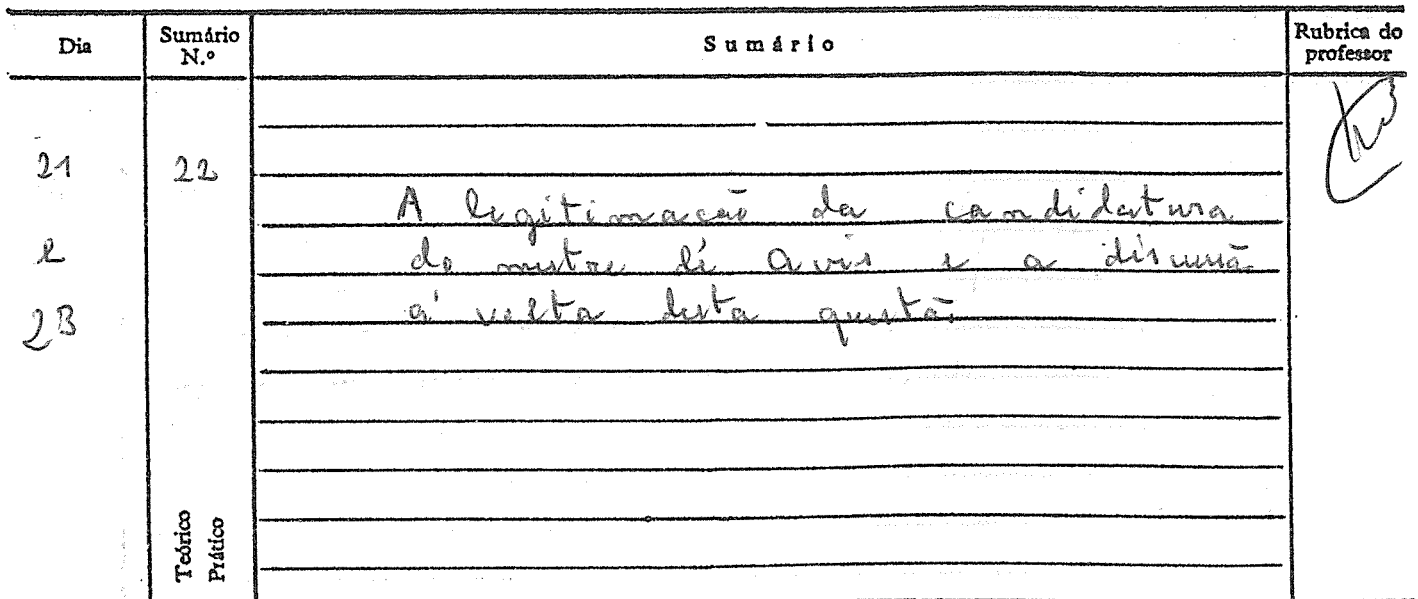 Dia Sumário N.º Sumário Rubrica do professor
21 22
A legitimação da candidatura
e do mestre de Avis e a discussão
23 à volta desta questão
Teórico
Prático